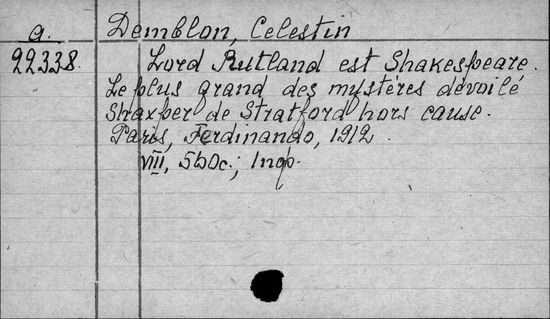 a.
22338.
Demblon, Celestin
Lord Rutland est Shakespeare.
Le plus grand des mystères dévoilé
Shaxper de Stratford hors cause.
Paris, Ferdinando, 1912
VIII, 560c.; 1